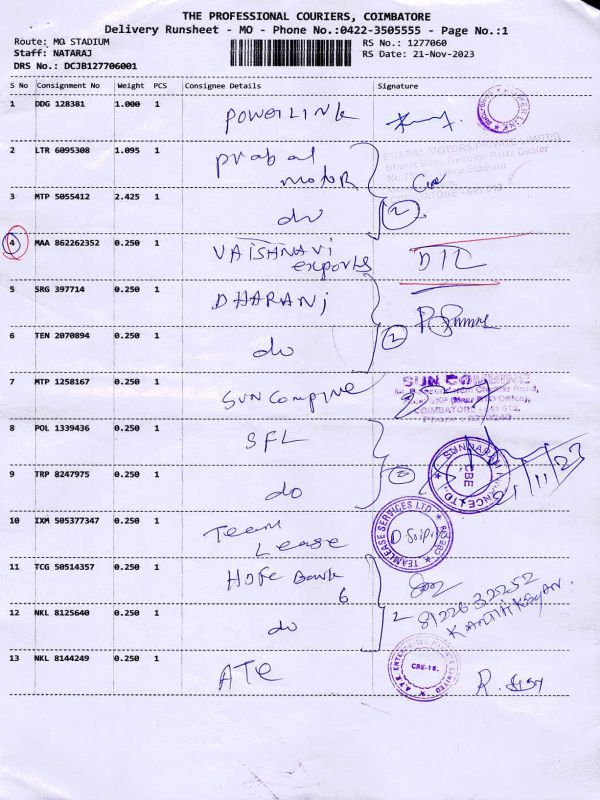 THE PROFESSIONAL COURIERS, COIMBATORE
Delivery Runsheet - MO - Phone No.:0422-3505555 - Page No.:1
Route: MG STADIUM
RS No.: 1277060
Staff: NATARAJ
RS Date: 21-Nov-2023
DRS No.: DCJB127706001
S No Consignment No Weight PCS Consignee Details Signature
1 DDG 128381 1.000 1 POWERLINK
2 LTR 6095308 1.095 1 prabal
motor
PRABAL MOTORS PRIVATE LIMITED
3 MTP 5055412 2.425 1 do 2
4 MAA 862262352 0.250 1 VAISHNAVI
exports DTL
5 SRG 397714 0.250 1 DHARANi
6 TEN 2070894 0.250 1 do 2
7 MTP 1258167 0.250 1 SUN Compine
SUN COMBINE
8 POL 1339436 0.250 1 SFL
9 TRP 8247975 0.250 1 do 2
CBE
21/11/23
10 IXM 505377347 0.250 1 Team
Lease
TEAMLEASE SERVICES LTD
11 TCG 50514357 0.250 1 HDFC Bank
6
8122632252
12 NKL 8125640 0.250 1 do 2
KARTHIKEYAN
13 NKL 8144249 0.250 1 ATE
CBE-18.